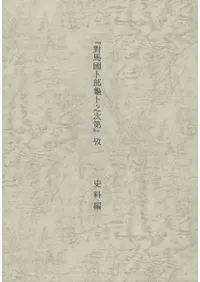 『對馬國卜部亀卜之次第』攷
史料編